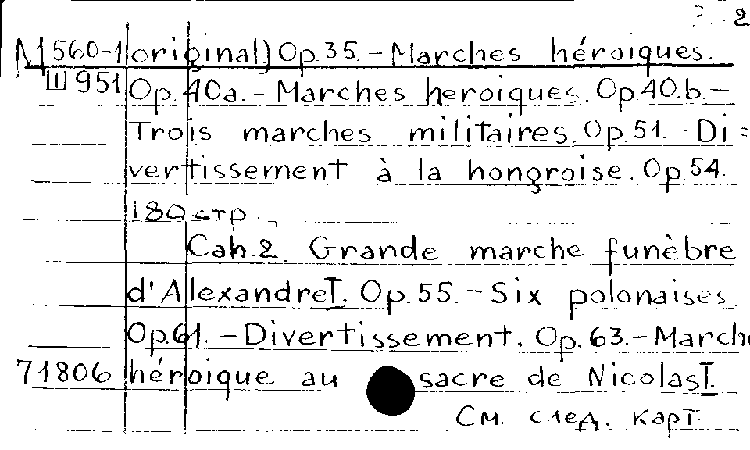 2
М 560-1 original) Op.35.-Marches héroiques.
Ш 951 Op.40a.-Marches heroiques. Op40.b.-
Trois marches militaires. Op.51. Di=
vertissement à la hongroise. Op.54.
180 стр.
Cah.2. Grande marche funèbre
d'Alexandre I. Op.55.-Six polonaises
Op.61.-Divertissement. Op.63.-March
71806 héroique au sacre de Nicolas I.
См. след. карт.